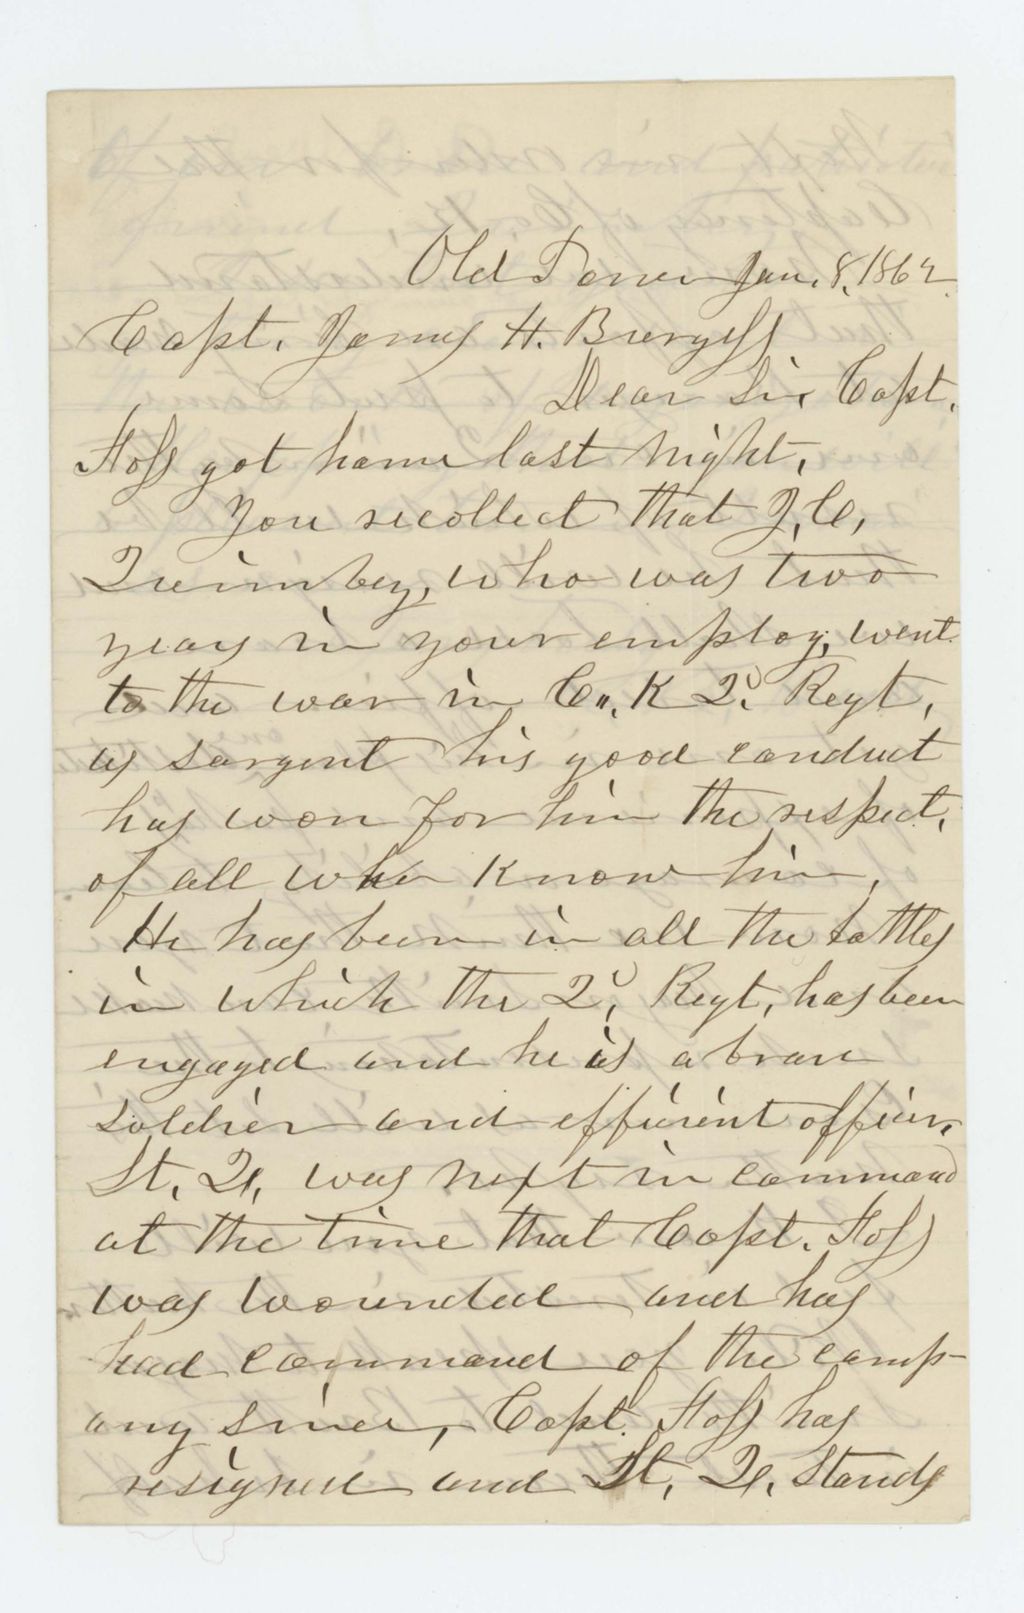 Old Town Jan. 8, 1862
Capt. James H. Burgess
Dear Sir, Capt.
Foss got home last night,
You recollect that J. C,
Quimbey, who was two
years in your employ, went
to the war in Co. K 2d Regt,
as sargent his good conduct
has won for him the respect,
of all who know him,
He has been in all the battles
in which the 2d, Regt, has been
engaged and he is a brave
soldier and efficient officer,
Lt, Q, was next in command
at the time that Capt. Foss
was wounded and has
had command of the comp-
any since, Capt. Foss has
resigned and Lt, Q, stands